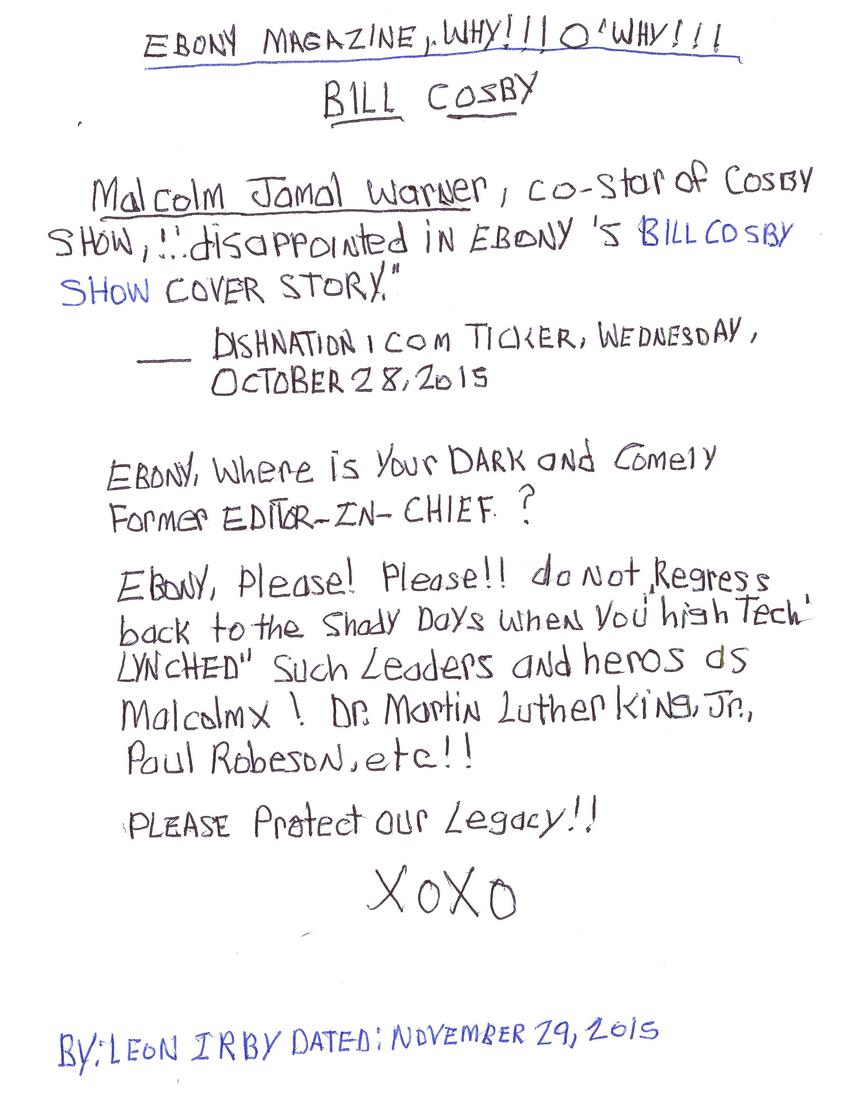 EBONY MAGAZINE, WHY!!! O'WHY!!!
BILL COSBY
Malcolm Jamal Warner, co-star of COSBY
SHOW, "disappointed IN EBONY 'S BILL COSBY
SHOW COVER STORY."
— DISHNATION.COM TICKER, WEDNESDAY,
OCTOBER 28, 2015
EBONY, Where is Your DARK aNd Comely
Former EDITOR-IN-CHIEF. ?
EBONY, Please! Please!! do Not Regress
back to the Shady Days WheN You 'high Tech'
LYNCHED" Such Leaders and heros as
Malcolm X ! Dr. Martin Luther King, Jr.,
Paul Robeson, etc!!
PLEASE Protect our Legacy!!
XOXO
BY: LEON IRBY DATED: NOVEMBER 29, 2015